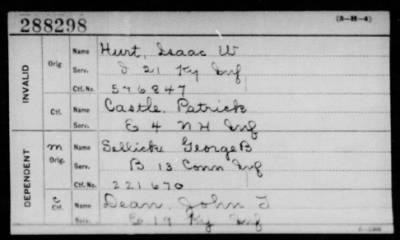 288298 (3-H-4)
INVALID
Orig Name Hurt, Isaac W
Serv. I 21 Ky Inf
Ctf. No. 576847
Ctf. Name Castle, Patrick
Serv. E 4 N H Inf
DEPENDENT
m Orig. Name Sellick George B
Serv. B 13 Conn Inf
Ctf. No. 221670
C Ctf. Name Dean, John T
Serv. E 19 Ky Inf